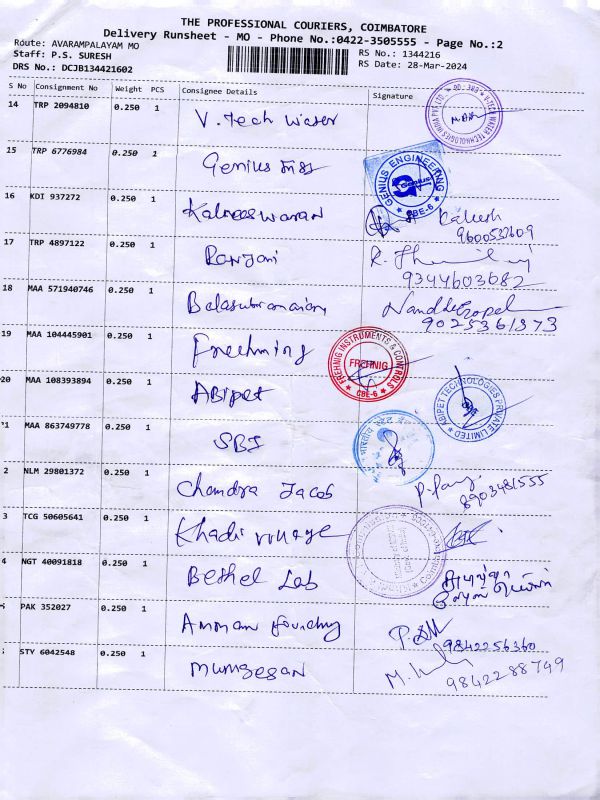 THE PROFESSIONAL COURIERS, COIMBATORE
Delivery Runsheet - MO - Phone No.:0422-3505555 - Page No.:2
Route: AVARAMPALAYAM MO
RS No.: 1344216
Staff: P.S. SURESH
RS Date: 28-Mar-2024
DRS No.: DCJB134421602
S No Consignment No Weight PCS Consignee Details Signature
14 TRP 2094810 0.250 1 V. Tech Water
15 TRP 6776984 0.250 1 Genius
GENIUS ENGINEERING
Genius
CBE-6
16 KDI 937272 0.250 1 Kalreeswaran
Kalesh
17 TRP 4897122 0.250 1 Ranjani
9344603682
18 MAA 571940746 0.250 1 Balasubramaniam
9025361373
19 MAA 104445901 0.250 1 Frechning
FREHNIG INSTRUMENTS & CONTROLS
FREHNIG
CBE-6
20 MAA 108393894 0.250 1 ABipet
ABIPET TECHNOLOGIES PRIVATE LIMITED
21 MAA 863749778 0.250 1 SBI
2 NLM 29801372 0.250 1 Chandra Jacob
8903481555
3 TCG 50605641 0.250 1 Khadi village
4 NGT 40091818 0.250 1 Bethel Lab
PAK 352027 0.250 1 Amman foundry
9842256360
STY 6042548 0.250 1 Murugesan
9842288749